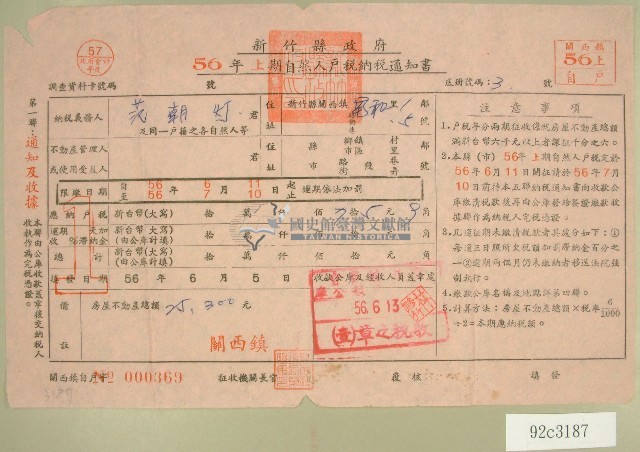 新竹縣政府
56年上期自然人戶稅納稅通知書
57
年度
關西鎮
56上
自戶
調查資料卡號碼 號
底冊號碼:3 號
第一聯:通知及收據
本聯由公庫收款蓋章後交納稅人收執作為完稅憑證。
納稅義務人
朝灯 君
及同一戶籍之各自然人等
住址
新竹縣關西鎮
里
鄰
號
不動產管理人
或使用受益人
君
住址
縣市
鄉鎮市區
路街
段
村里巷弄
鄰
號
限繳日期
自 56年6月11日起
至 56年7月10日止
逾期依法加罰
應納戶稅 新台幣(大寫) 拾 萬 仟 佰 拾 元 角
逾期 天加收 %滯納金 新台幣(大寫)(由公庫計填) 拾 萬 仟 佰 拾 元 角
總計 新台幣(大寫)(由公庫計填) 拾 萬 仟 佰 拾 元 角
填發日期 56年6月5日
收款公庫及經收人員蓋章處
備註
房屋不動產總額 25,300 元
關西鎮
56.6.13
收稅之章(壹)
國史館臺灣文獻館
TAIWAN HISTORICA
注意事項
1.戶稅每分兩期徵收係就房屋不動產總額滿新台幣六千元以上者課征千分之六。
2.本縣(市)56年上期自然人戶稅定於56年6月11日開征請於56年7月10日前持本五聯納稅通知書向收款公庫繳清稅款後再由公庫發給蓋戳繳款收據聯作為納稅人完稅憑證。
3.凡逾征期未繳清稅款者其處分如下:(1)每逾三日照所欠稅額加征滯納金百分之一(2)逾期兩個月仍未繳者移送法院強制執行。
4.繳款公庫名稱及地點詳第四聯。
5.計算方法:房屋不動產總額×稅率6/1000÷2=本期應納稅額。
關西鎮自戶字 № 000369
征收機關長官
覆核
填發
92c3187